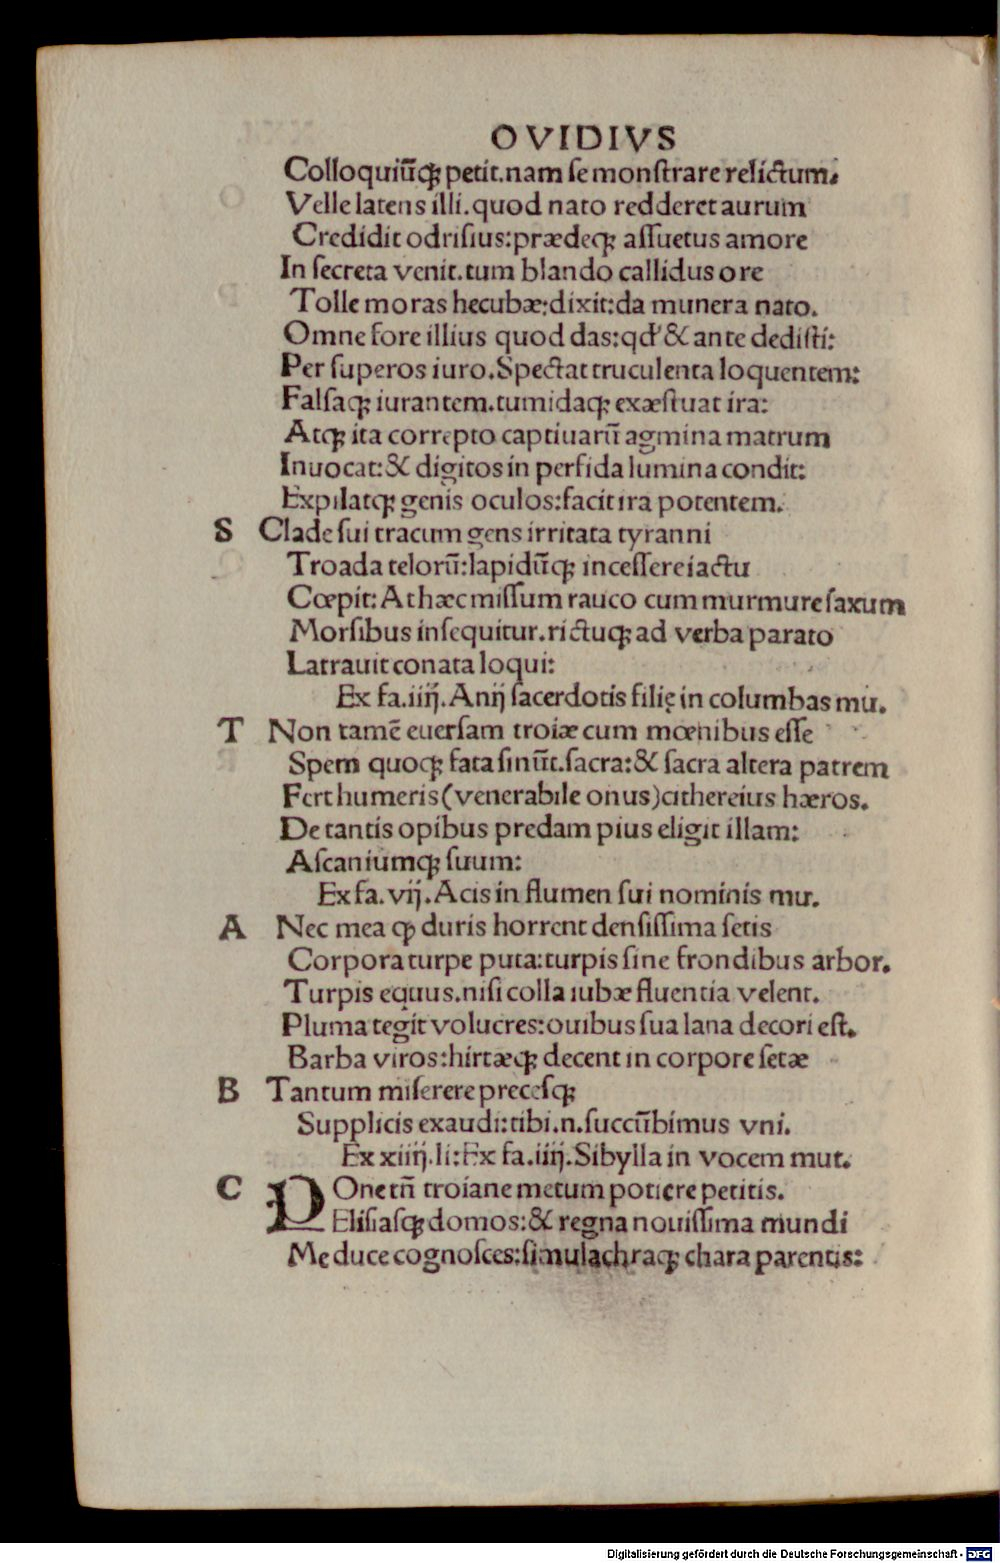 OVIDIVS
Colloquiū\u0071ꝫ petit.nam ſe monſtrare relictum.
Velle latens illi.quod nato redderet aurum
Credidit odriſius:prædeqꝫ aſſuetus amore
In ſecreta venit.tum blando callidus ore
Tolle moras hecubæ:dixit:da munera nato.
Omne fore illius quod das:qd' & ante dediſti:
Per ſuperos iuro.Spectat truculenta loquentem:
Falſaqꝫ iurantem.tumidaqꝫ exæſtuat ira:
Atqꝫ ita correpto captiuarū agmina matrum
Inuocat:& digitos in perfida lumina condit:
Expilatqꝫ genis oculos:facit ira potentem.
S Clade ſui tracum gens irritata tyranni
Troada telorū:lapidūqꝫ inceſſere iactu
Cœpit:At hæc miſſum rauco cum murmure ſaxum
Morſibus inſequitur.rictuqꝫ ad verba parato
Latrauit conata loqui:
Ex fa.iiij.Anij ſacerdotis filię in columbas mu.
T Non tamē euerſam troiæ cum mœnibus eſſe
Spem quoqꝫ fata ſinūt.ſacra:& ſacra altera patrem
Fert humeris(venerabile onus)cithereius hæros.
De tantis opibus predam pius eligit illam:
Aſcaniumqꝫ ſuum:
Ex fa.vij.Acis in flumen ſui nominis mu.
A Nec mea ꝙ duris horrent denſiſſima ſetis
Corpora turpe puta:turpis ſine frondibus arbor.
Turpis equus.niſi colla iubæ fluentia velent.
Pluma tegit volucres:ouibus ſua lana decori eſt.
Barba viros:hirtæqꝫ decent in corpore ſetæ
B Tantum miſerere preceſqꝫ
Supplicis exaudi:tibi.n.ſuccūbimus vni.
Ex xiiij.li:Ex fa.iiij.Sibylla in vocem mut.
C POne tñ troiane metum potiere petitis.
Eliſiaſqꝫ domos:& regna nouiſſima mundi
Me duce cognoſces:ſimulachraqꝫ chara parentis:
Digitalisierung gefördert durch die Deutsche Forschungsgemeinschaft - DFG